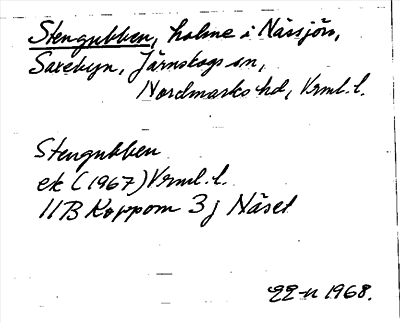 Stengubben, holme i Nässjön,
Saxebyn, Järnskogs sn,
Nordmarks hd, Vrml. l.
Stengubben
ek (1967) Vrml. l.
11B Koppom 3j Näset
22-11 1968.